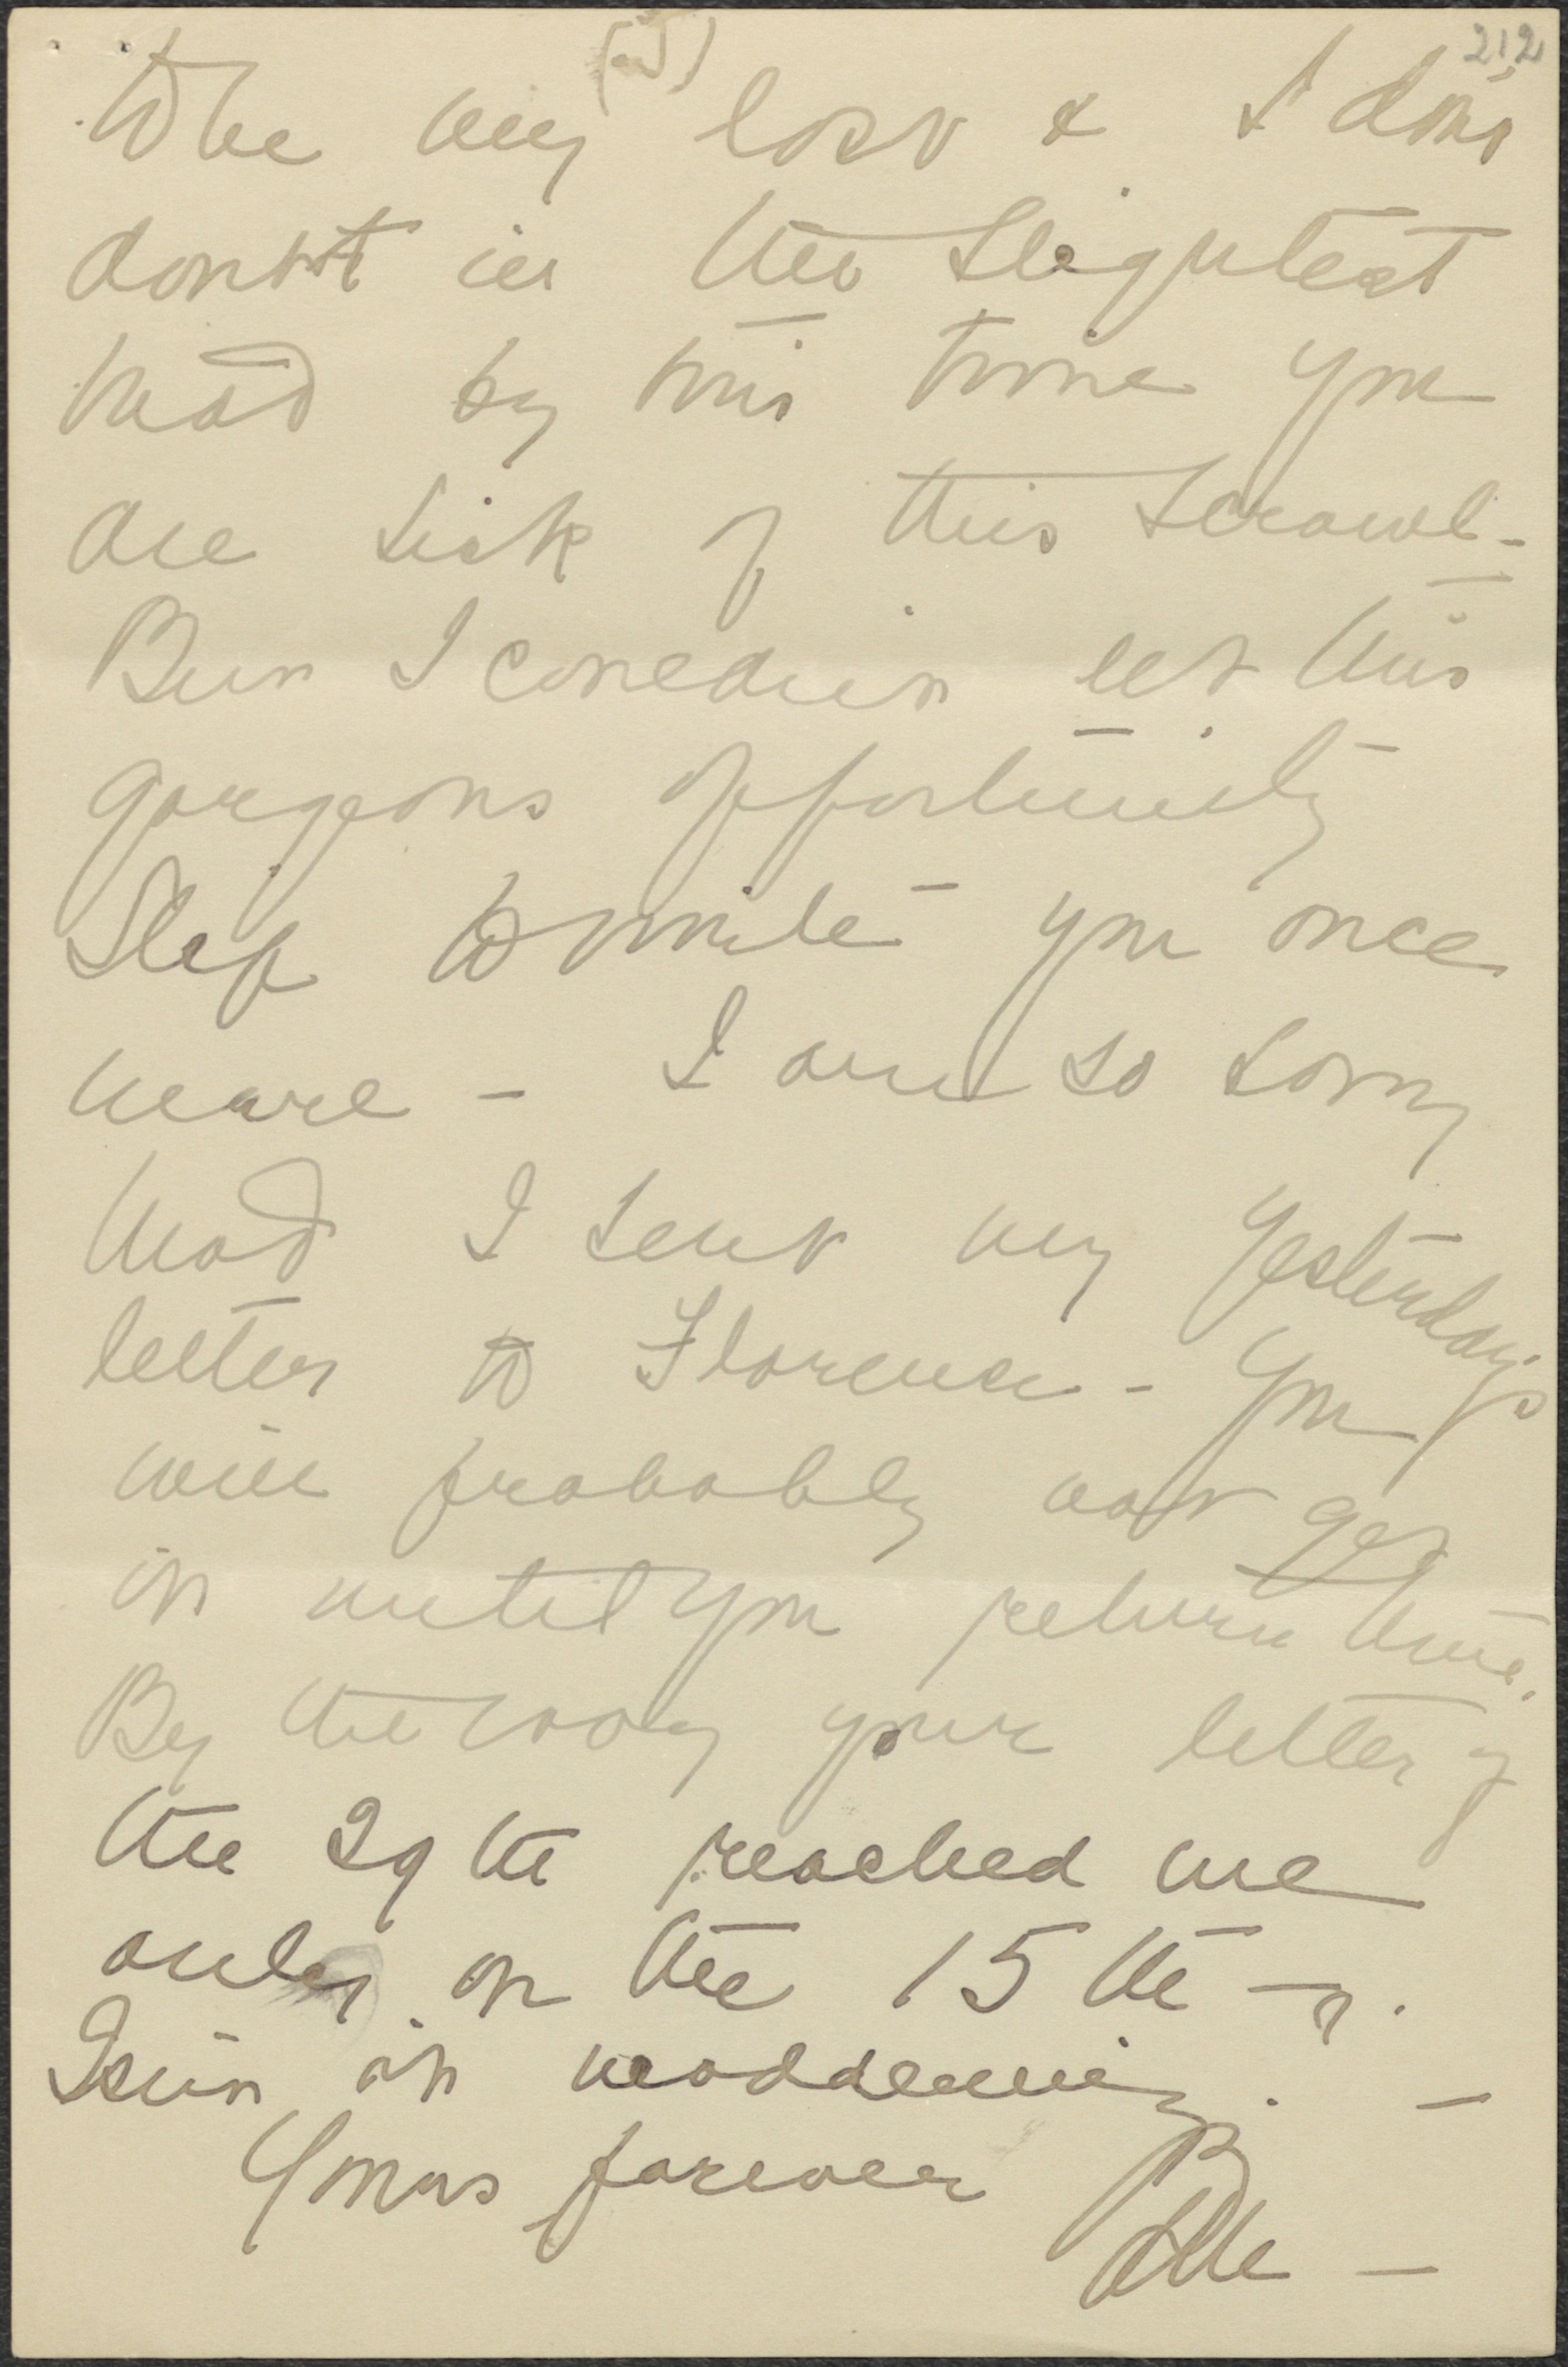 212
to be my last & I don't
doubt in the slightest
that by this time you
are sick of this scrawl -
But I couldn't let this
gorgeous opportunity
slip to write you once
more - I am so sorry
that I sent my yesterday's
letter to Florence - You
will probably not get
it until you return there.
By the way your letter of
the 29th reached me
only on the 15th -
Isn't it maddening. -
Yours forever
Belle -